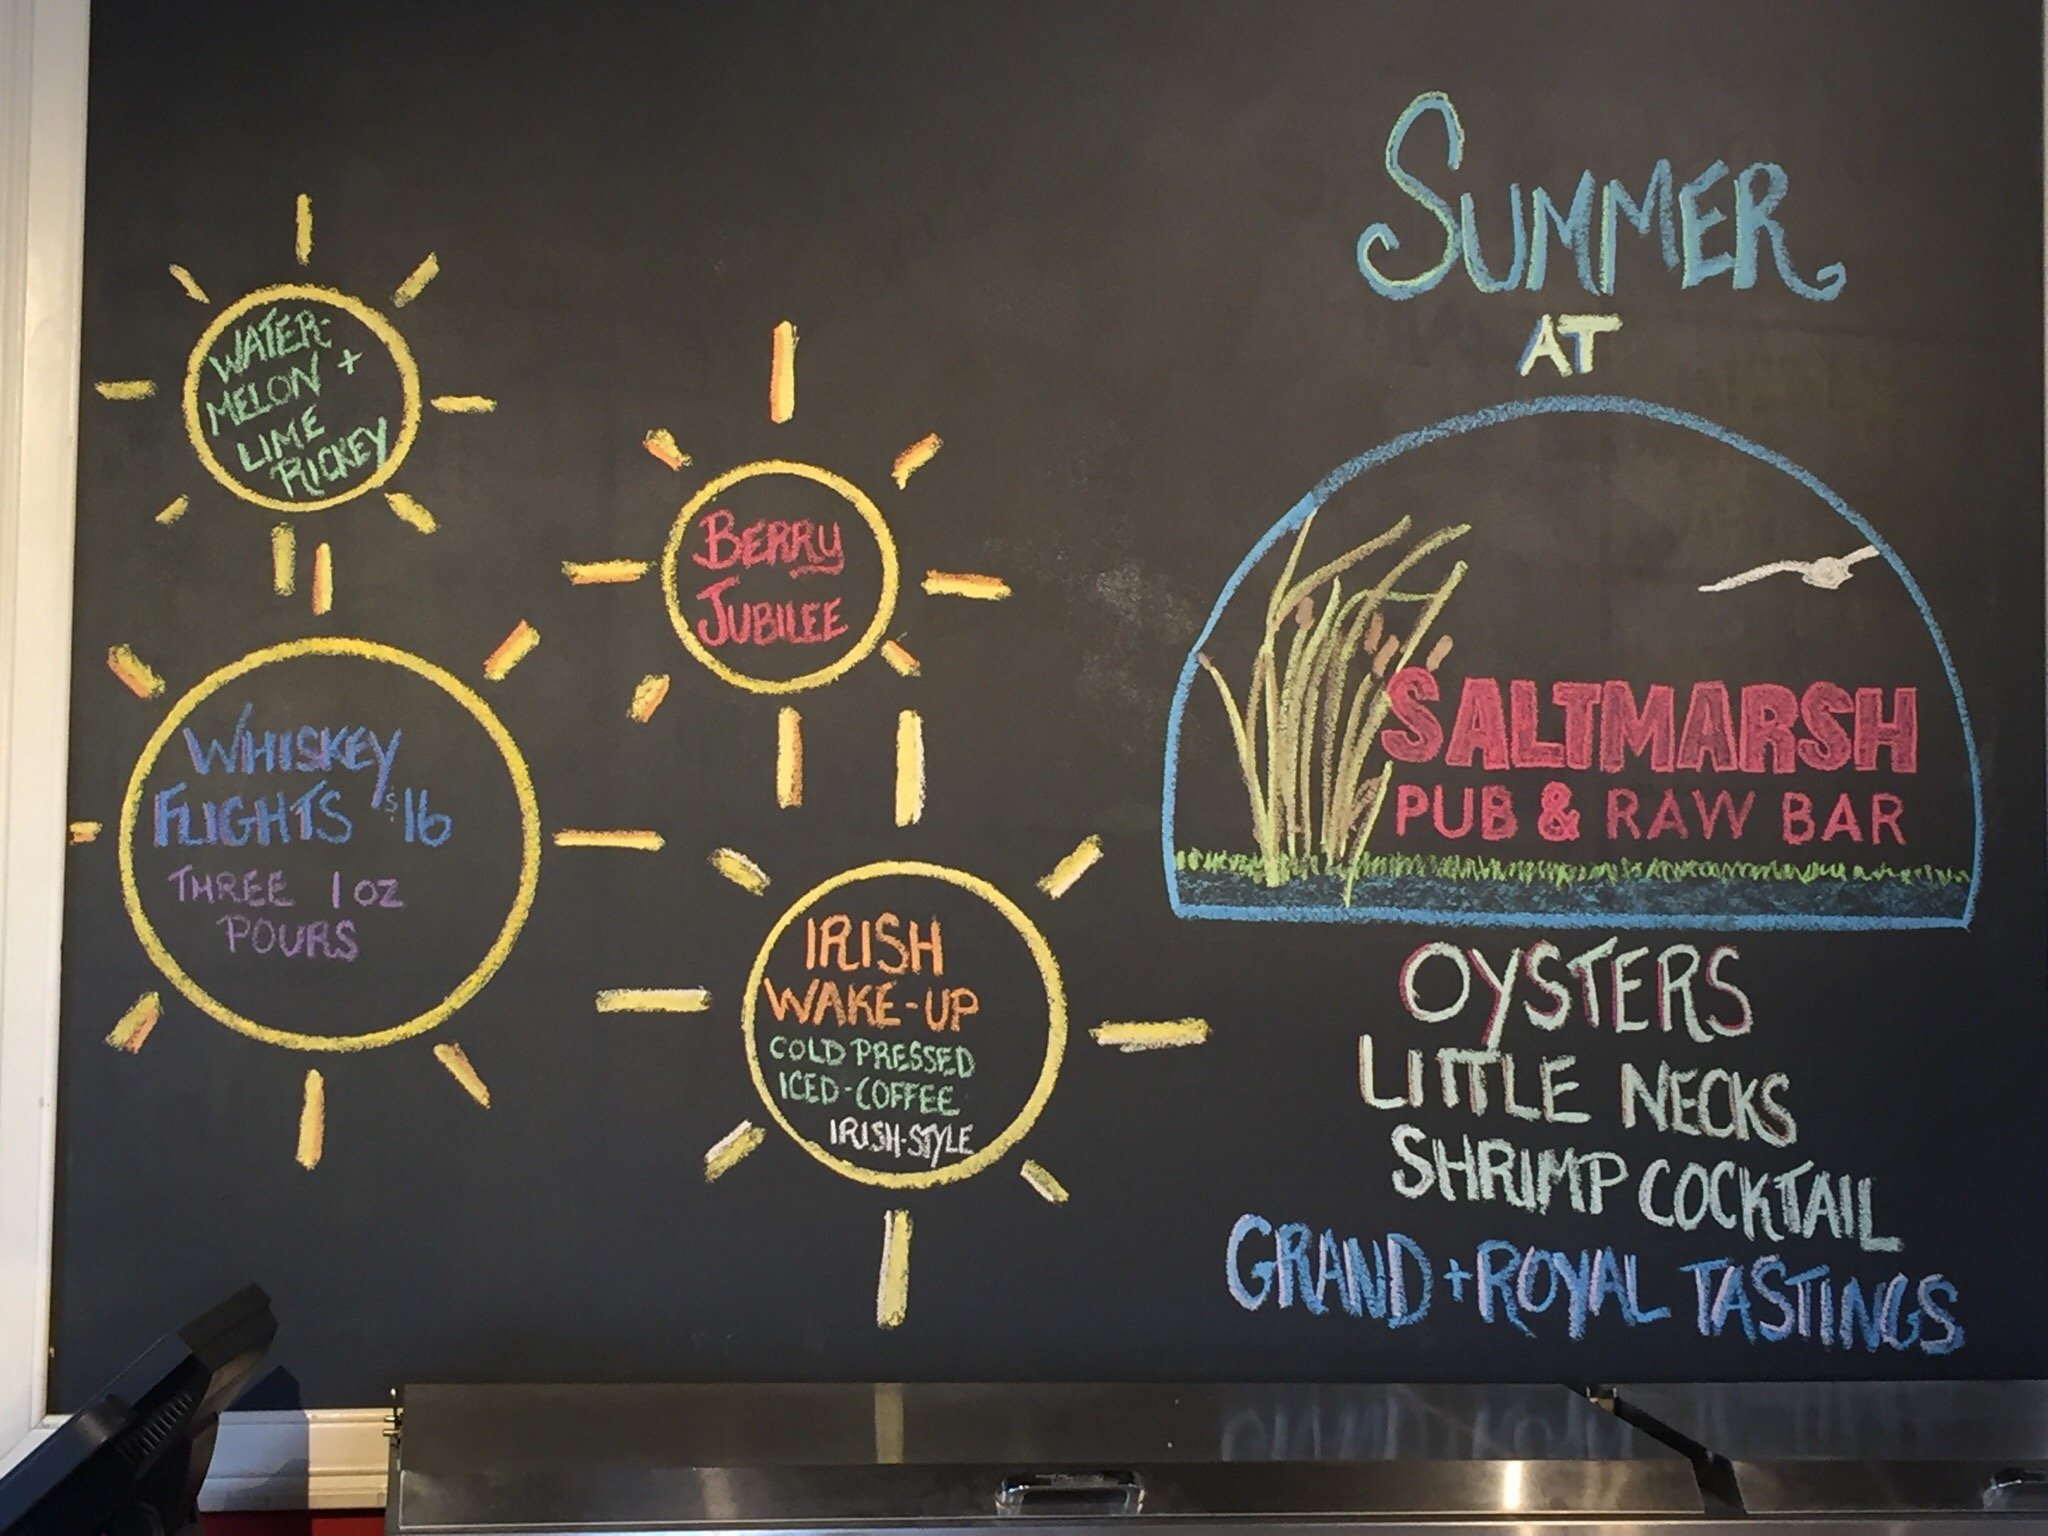 WATER-
MELON +
LIME
RICKEY
BERRY
JUBILEE
WHISKEY
FLIGHTS $16
THREE 1 OZ
POURS
IRISH
WAKE-UP
COLD PRESSED
ICED-COFFEE
IRISH-STYLE
SUMMER
AT
SALTMARSH
PUB & RAW BAR
OYSTERS
LITTLE NECKS
SHRIMP COCKTAIL
GRAND + ROYAL TASTINGS